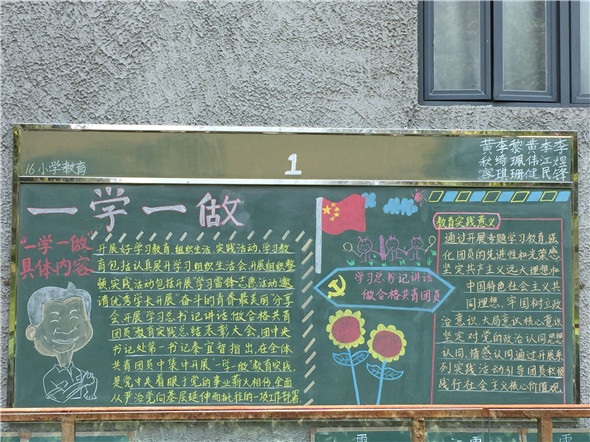 16小学教育
1
黄李黎黄李李
秋绮珮伟江煜
容琪珊健民锋
一学一做
“一学一做”
具体内容
开展好学习教育,组织生活,实践活动,学习教
育包括认真展开学习组织生活会,开展组织整
顿,实践活动包括开展学习雷锋志愿活动,邀
请优秀学长开展“奋斗的青春最美丽”分享
会,开展学习总书记讲话做合格共青
团员”教育实践总结表彰大会,团中央
书记处第一书记秦宜智指出,在全体
共青团员中集中开展“一学一做”教育实践,
是党中央着眼于党的事业薪火相传,全面
从严治党向基层延伸而批准的一项工作部署
学习总书记讲话
做合格共青团员
教育实践意义
通过开展专题学习教育强
化团员的先进性和光荣感
坚定共产主义远大理想和
中国特色社会主义共
同理想,牢固树立政
治意识大局意识核心意识
坚定对党的政治认同思想
认同,情感认同通过开展系
列实践活动引导团员积极
践行社会主义核心价值观